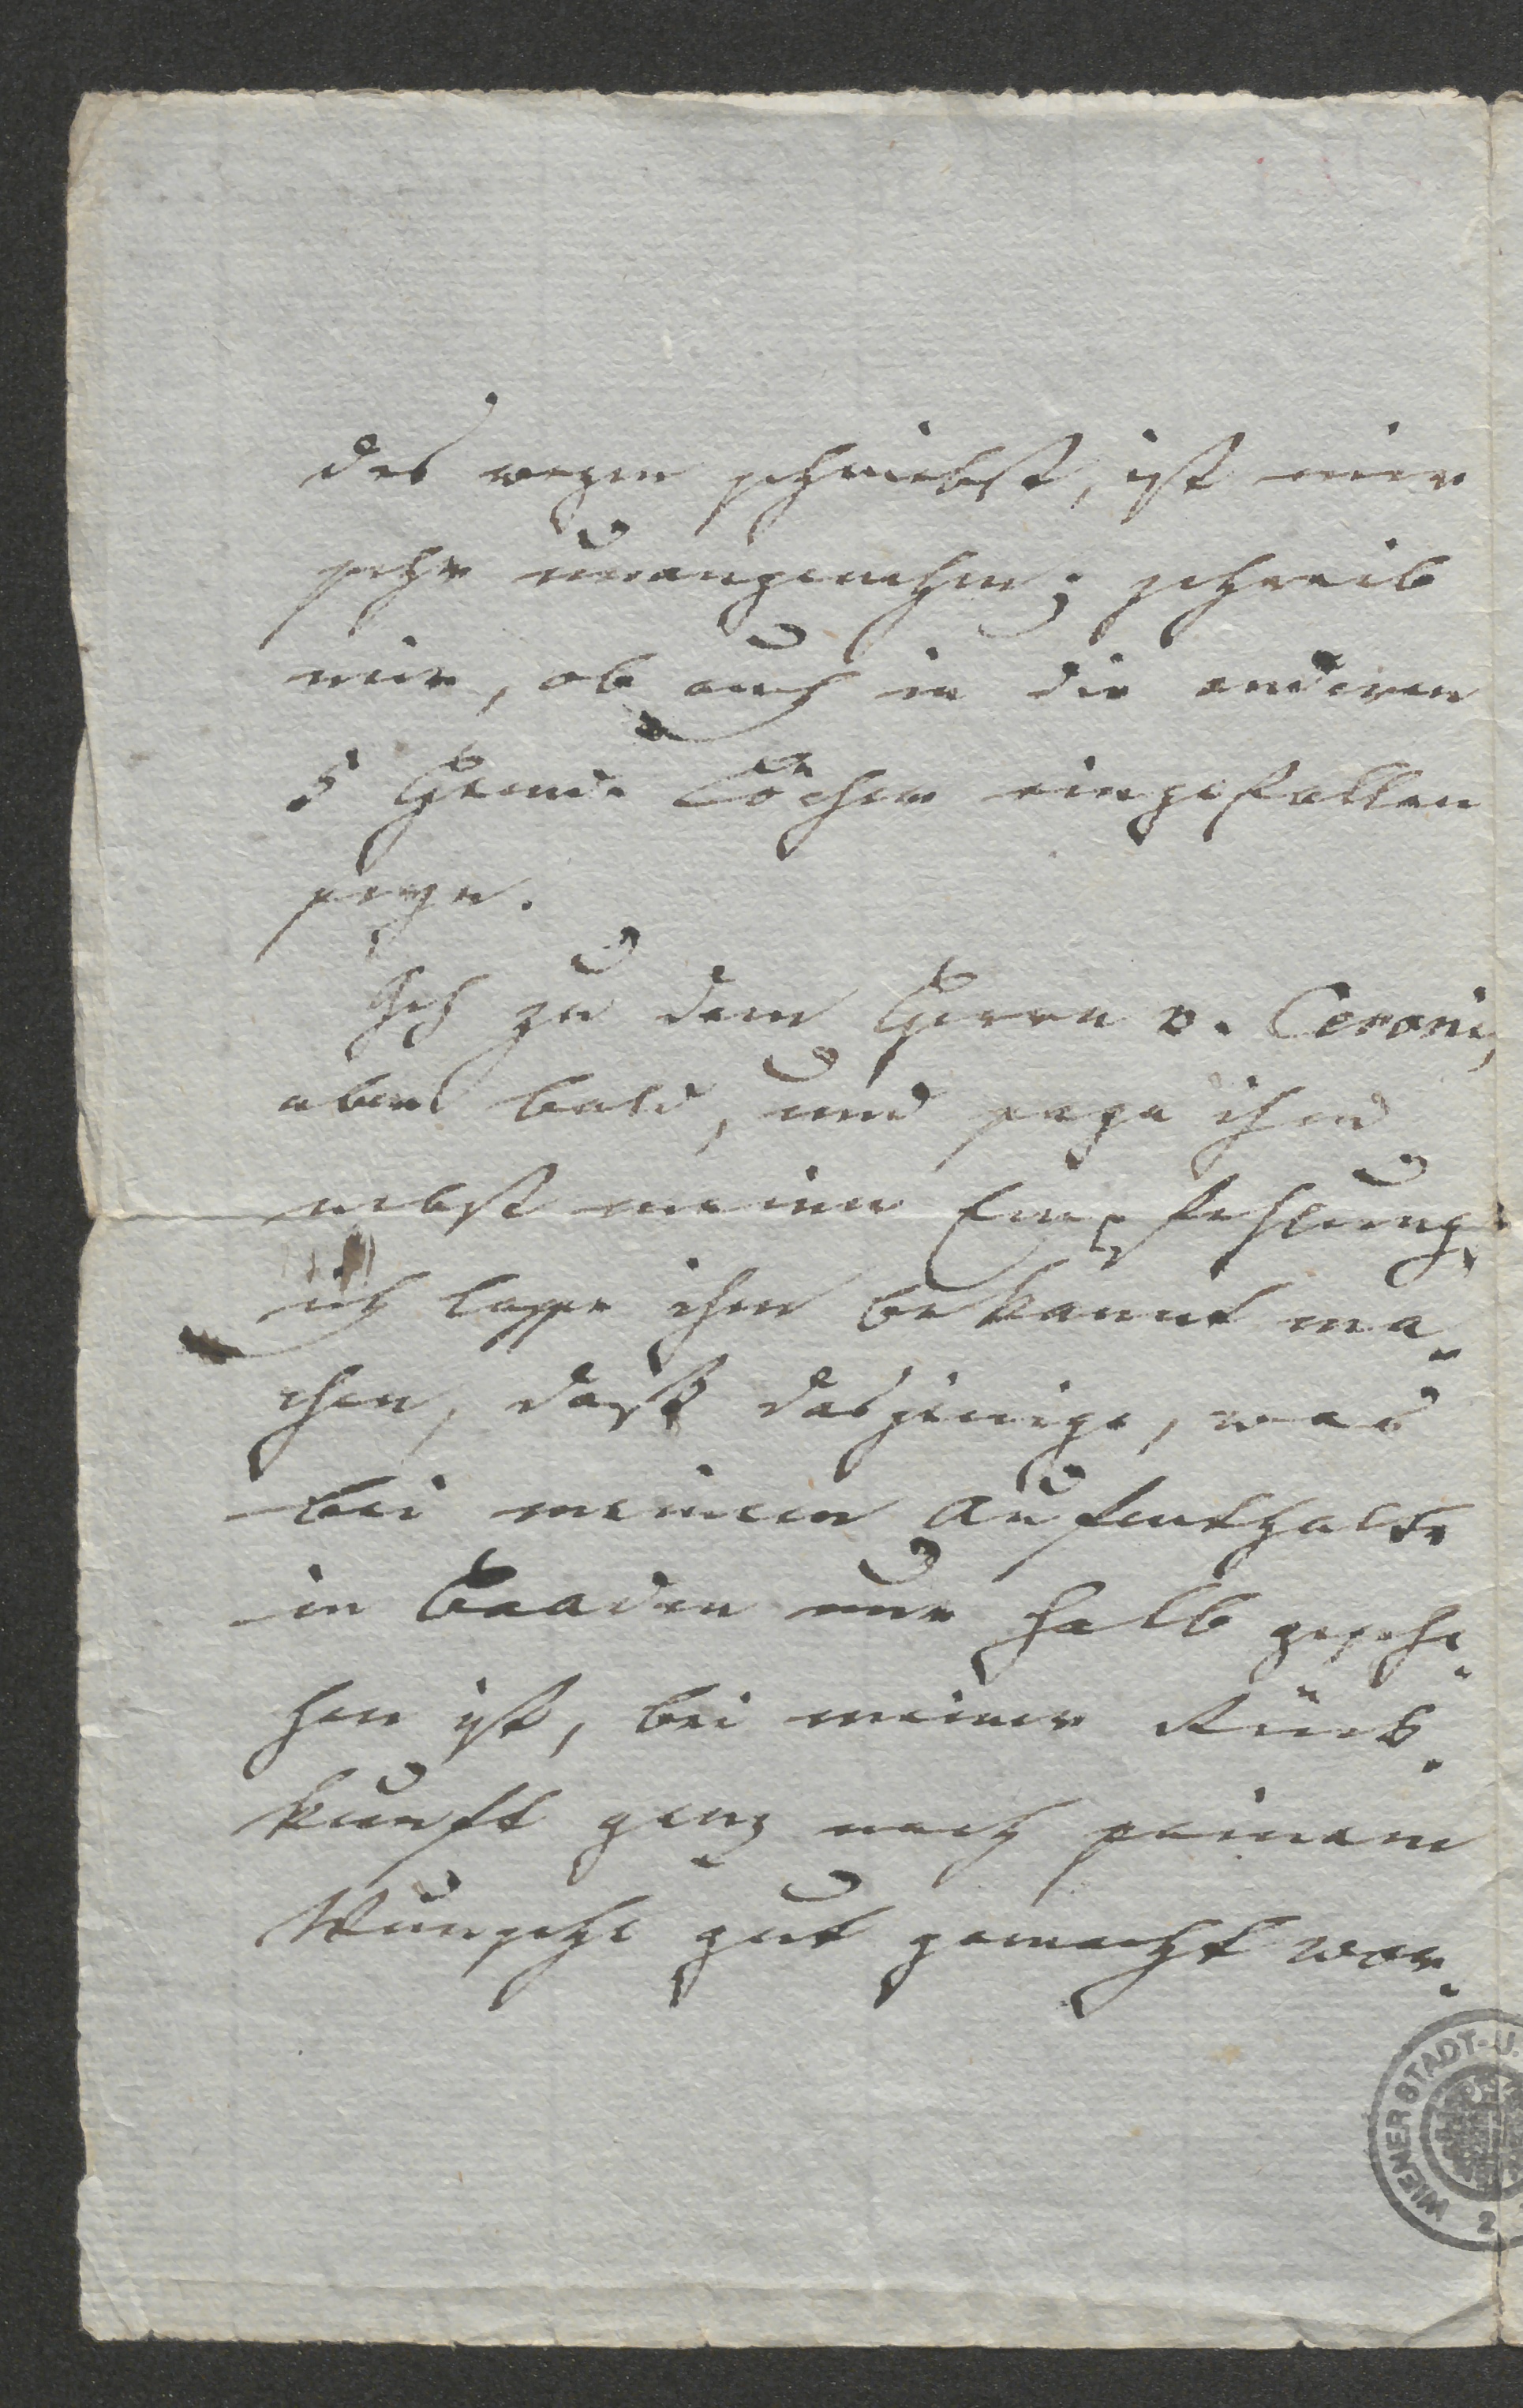 des wegen schriebst, ist mir
sehr unangenehm; schreib
mir, ob auch in die anderen
5 Hemde Löcher eingefallen
seyn.
Geh zu dem Herrn v. Ceroni,
aber bald, und sage ihm
nebst meiner Empfehlung,
ich lasse ihm bekannt ma-
chen, dass dasjenige, was
bei meinem Aufenthalte
in Baaden nur halb gesche-
hen ist, bei meiner Rük-
kunft ganz nach seinem
Wunsche gut gemacht wer-
WIENER STADT-U.
2